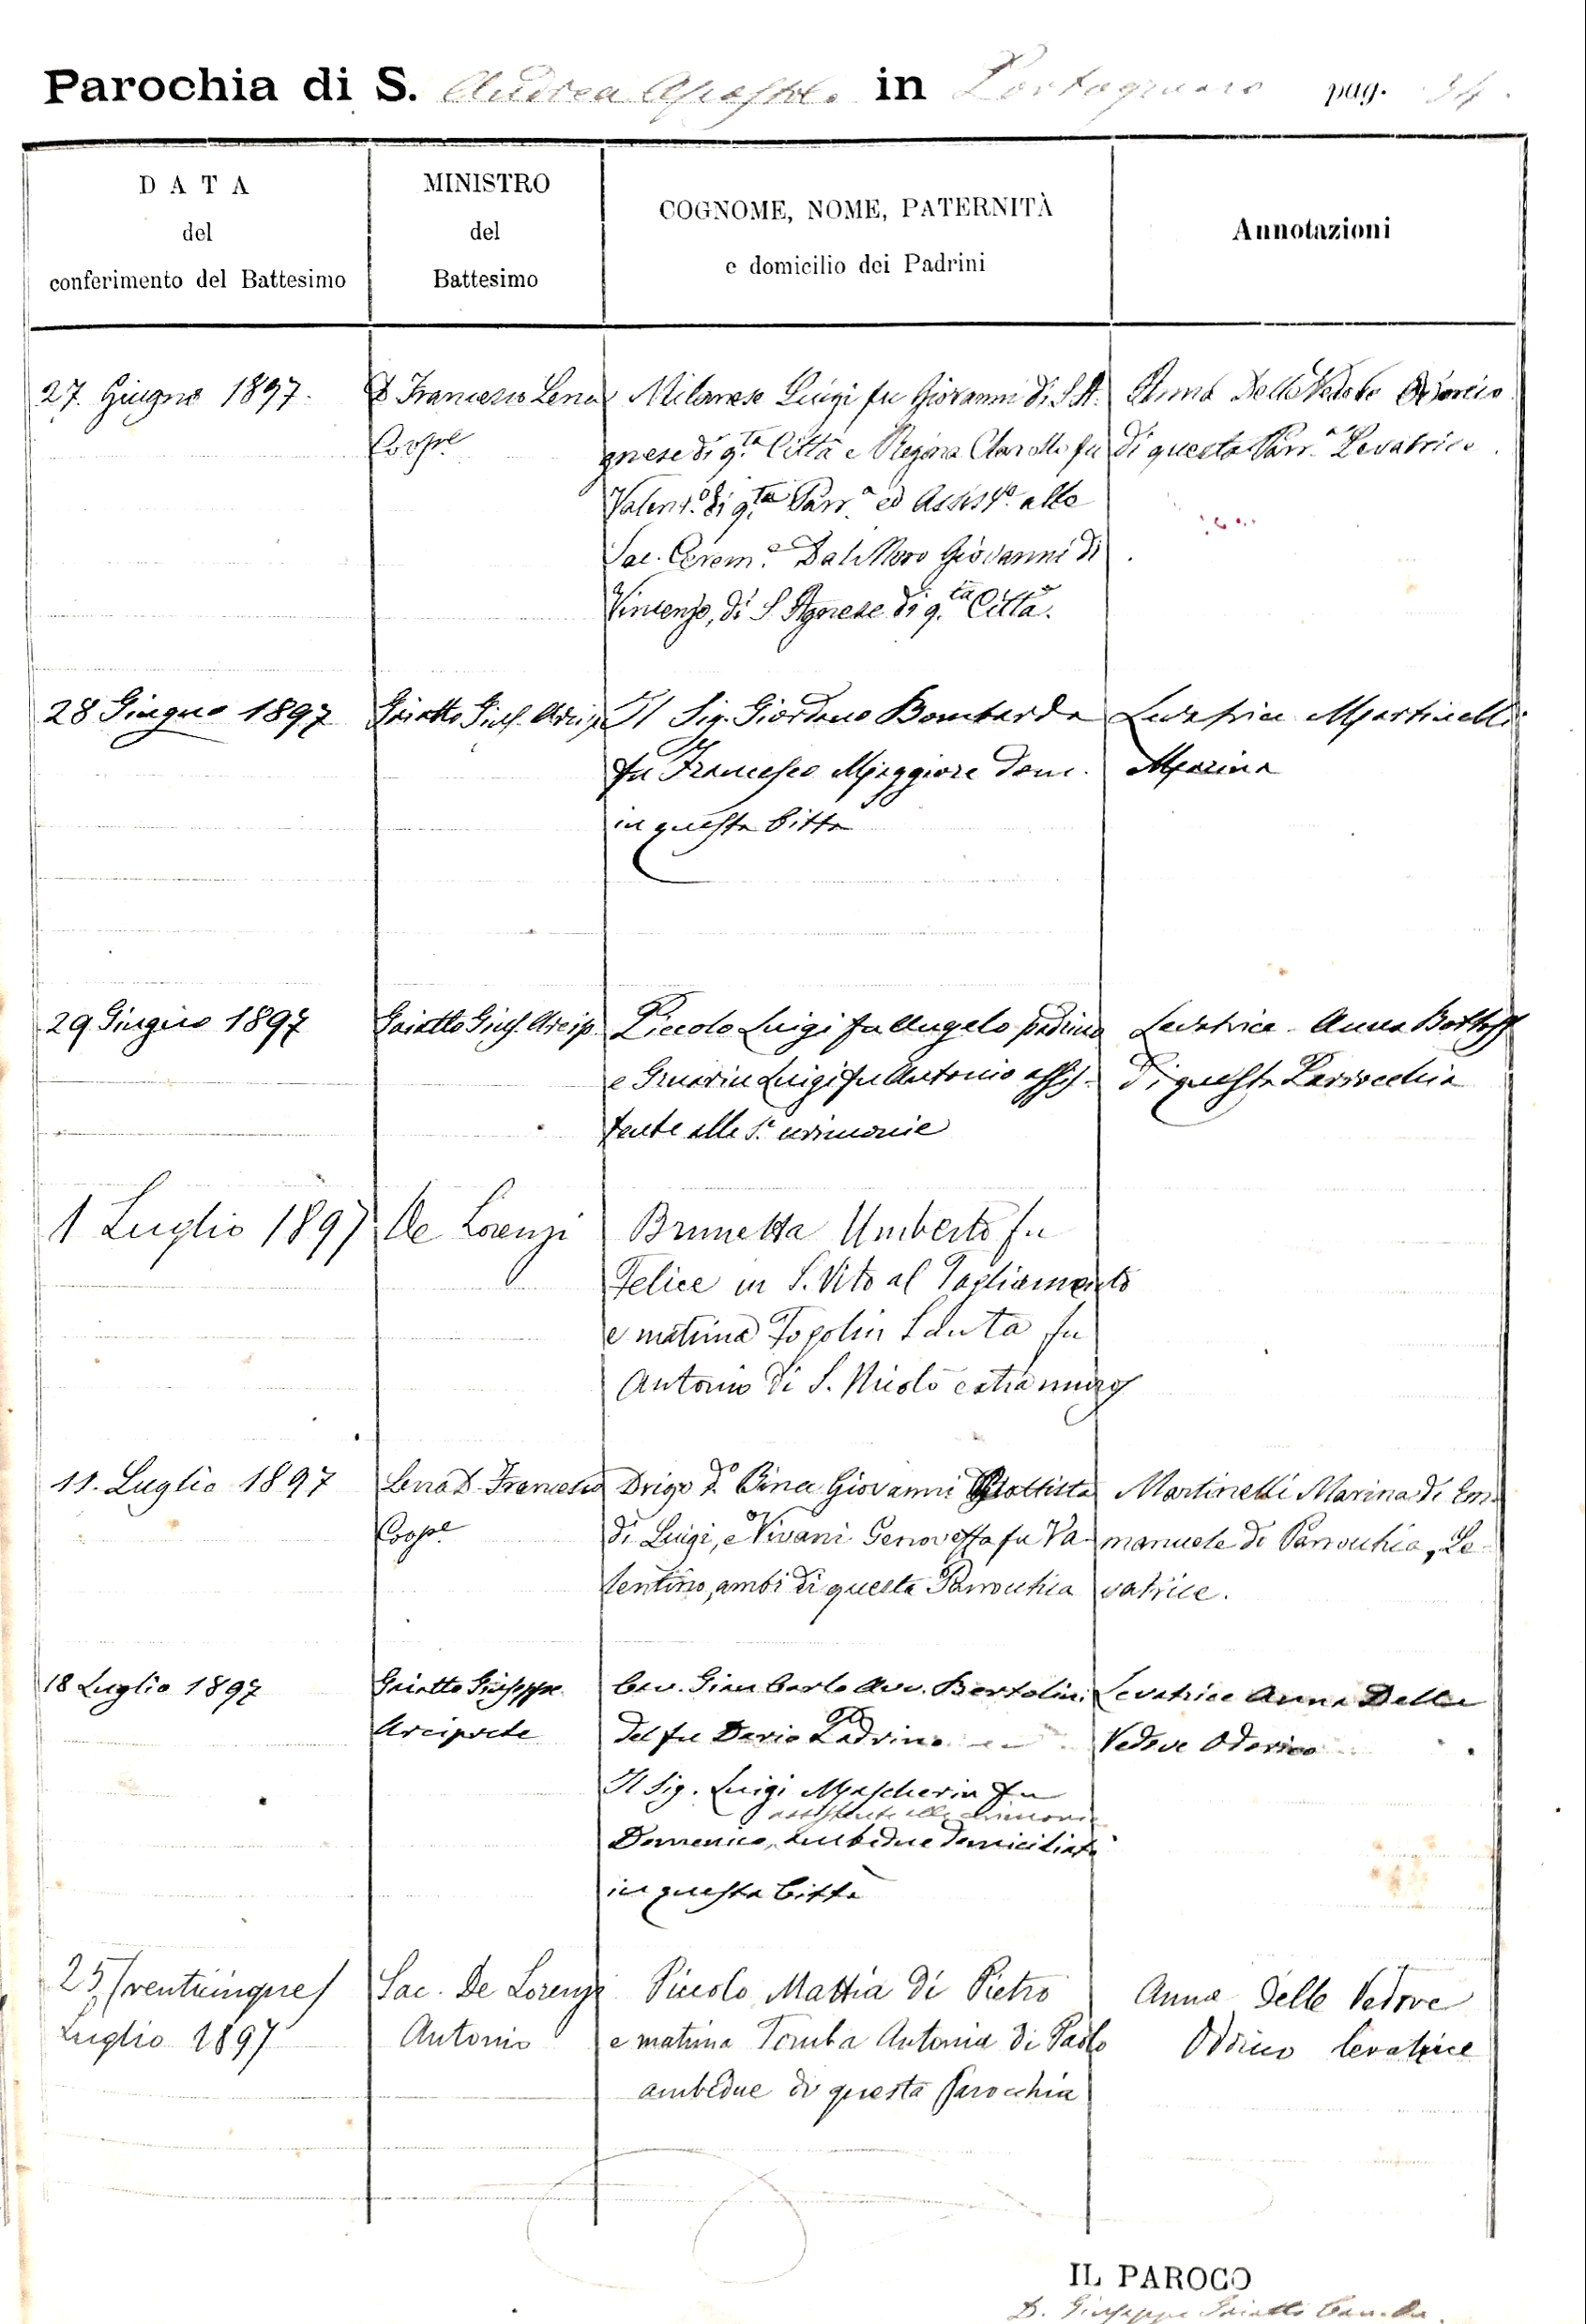 Parochia di S. Andrea Apostolo in Portogruaro pag. 34.
DATA
del
conferimento del Battesimo
MINISTRO
del
Battesimo
COGNOME, NOME, PATERNITÀ
e domicilio dei Padrini
Annotazioni
27. Giugno 1897.
D Francesco Lena
Coope
Milanese Luigi fu Giovanni di S. A-
gnese di q.ta Città e Regina Clarotto fu
Valent.o di q.ta Parr.a ed Assist.e alle
Sac. Cerem.e Dal Moro Giovanni di
Vincenzo, di S Agnese di q.ta Città.
Anna Delle Vedove Odorico
di questa Parr.a Levatrice.
28 Giugno 1897
Gaiatto Gius. Arcip.
Il Sig. Giordano Bombarda
fu Francesco Maggiore dom.
in questa Città
Levatrice Martinelli
Marina
29 Giugno 1897
Gaiatto Gius. Arcip.
Piccolo Luigi fu Angelo padrino
e Gruarin Luigi fu Antonio assis-
tente alle S. cerimonie
Levatrice Anna
di questa Parrocchia
1 Luglio 1897
De Lorenzi
Brunetta Umberto fu
Felice in S. Vito al Tagliamento
e matrina Fogolin Santa fu
Antonio di S. Nicolò extra muros
11. Luglio 1897
Lena D. Francesco
Coope
Drigo d.o Bina Giovanni Battista
di Luigi, e Vivani Genoveffa fu Va-
lentino, ambi di questa Parrocchia
Martinelli Marina di Em-
manuele di Parrocchia, Le-
vatrice.
18 Luglio 1897
Gaiatto Giuseppe
Arciprete
Cav. Gian Carlo Avv. Bertolini
del fu Dario Padrino
Il Sig. Luigi Mascherin fu
assistente alle cerimonie
Domenico, ambedue domiciliati
in questa Città
Levatrice Anna Delle
Vedove Odorico
25 (venticinque)
Luglio 1897
Sac. De Lorenzi
Antonio
Piccolo Mattia di Pietro
e matrina Tomba Antonia di Paolo
ambedue di questa Parocchia
Anna Delle Vedove
Odorico levatrice
IL PAROCO
D. Giuseppe Gaiatto